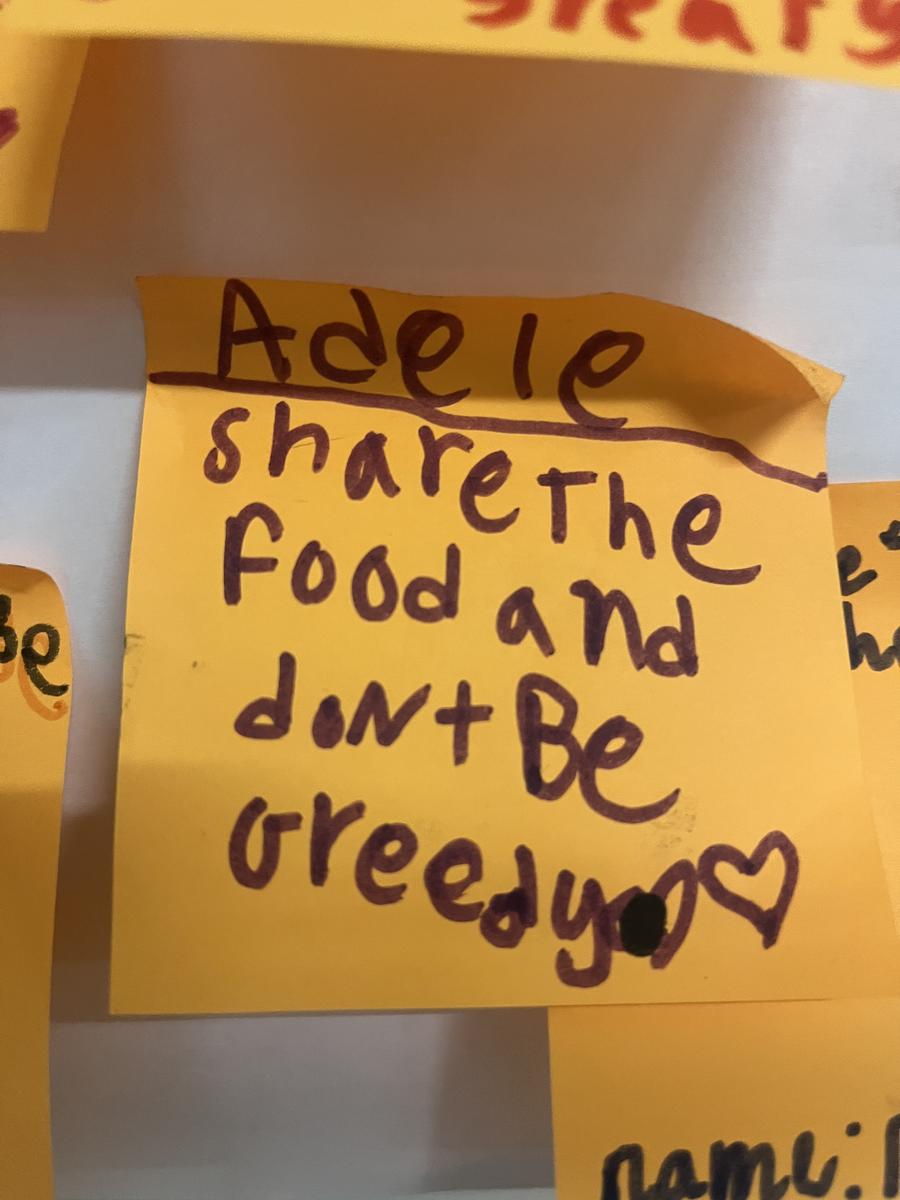 Adele
share The
Food and
doN+ Be
Greedy ♡
Be
name: